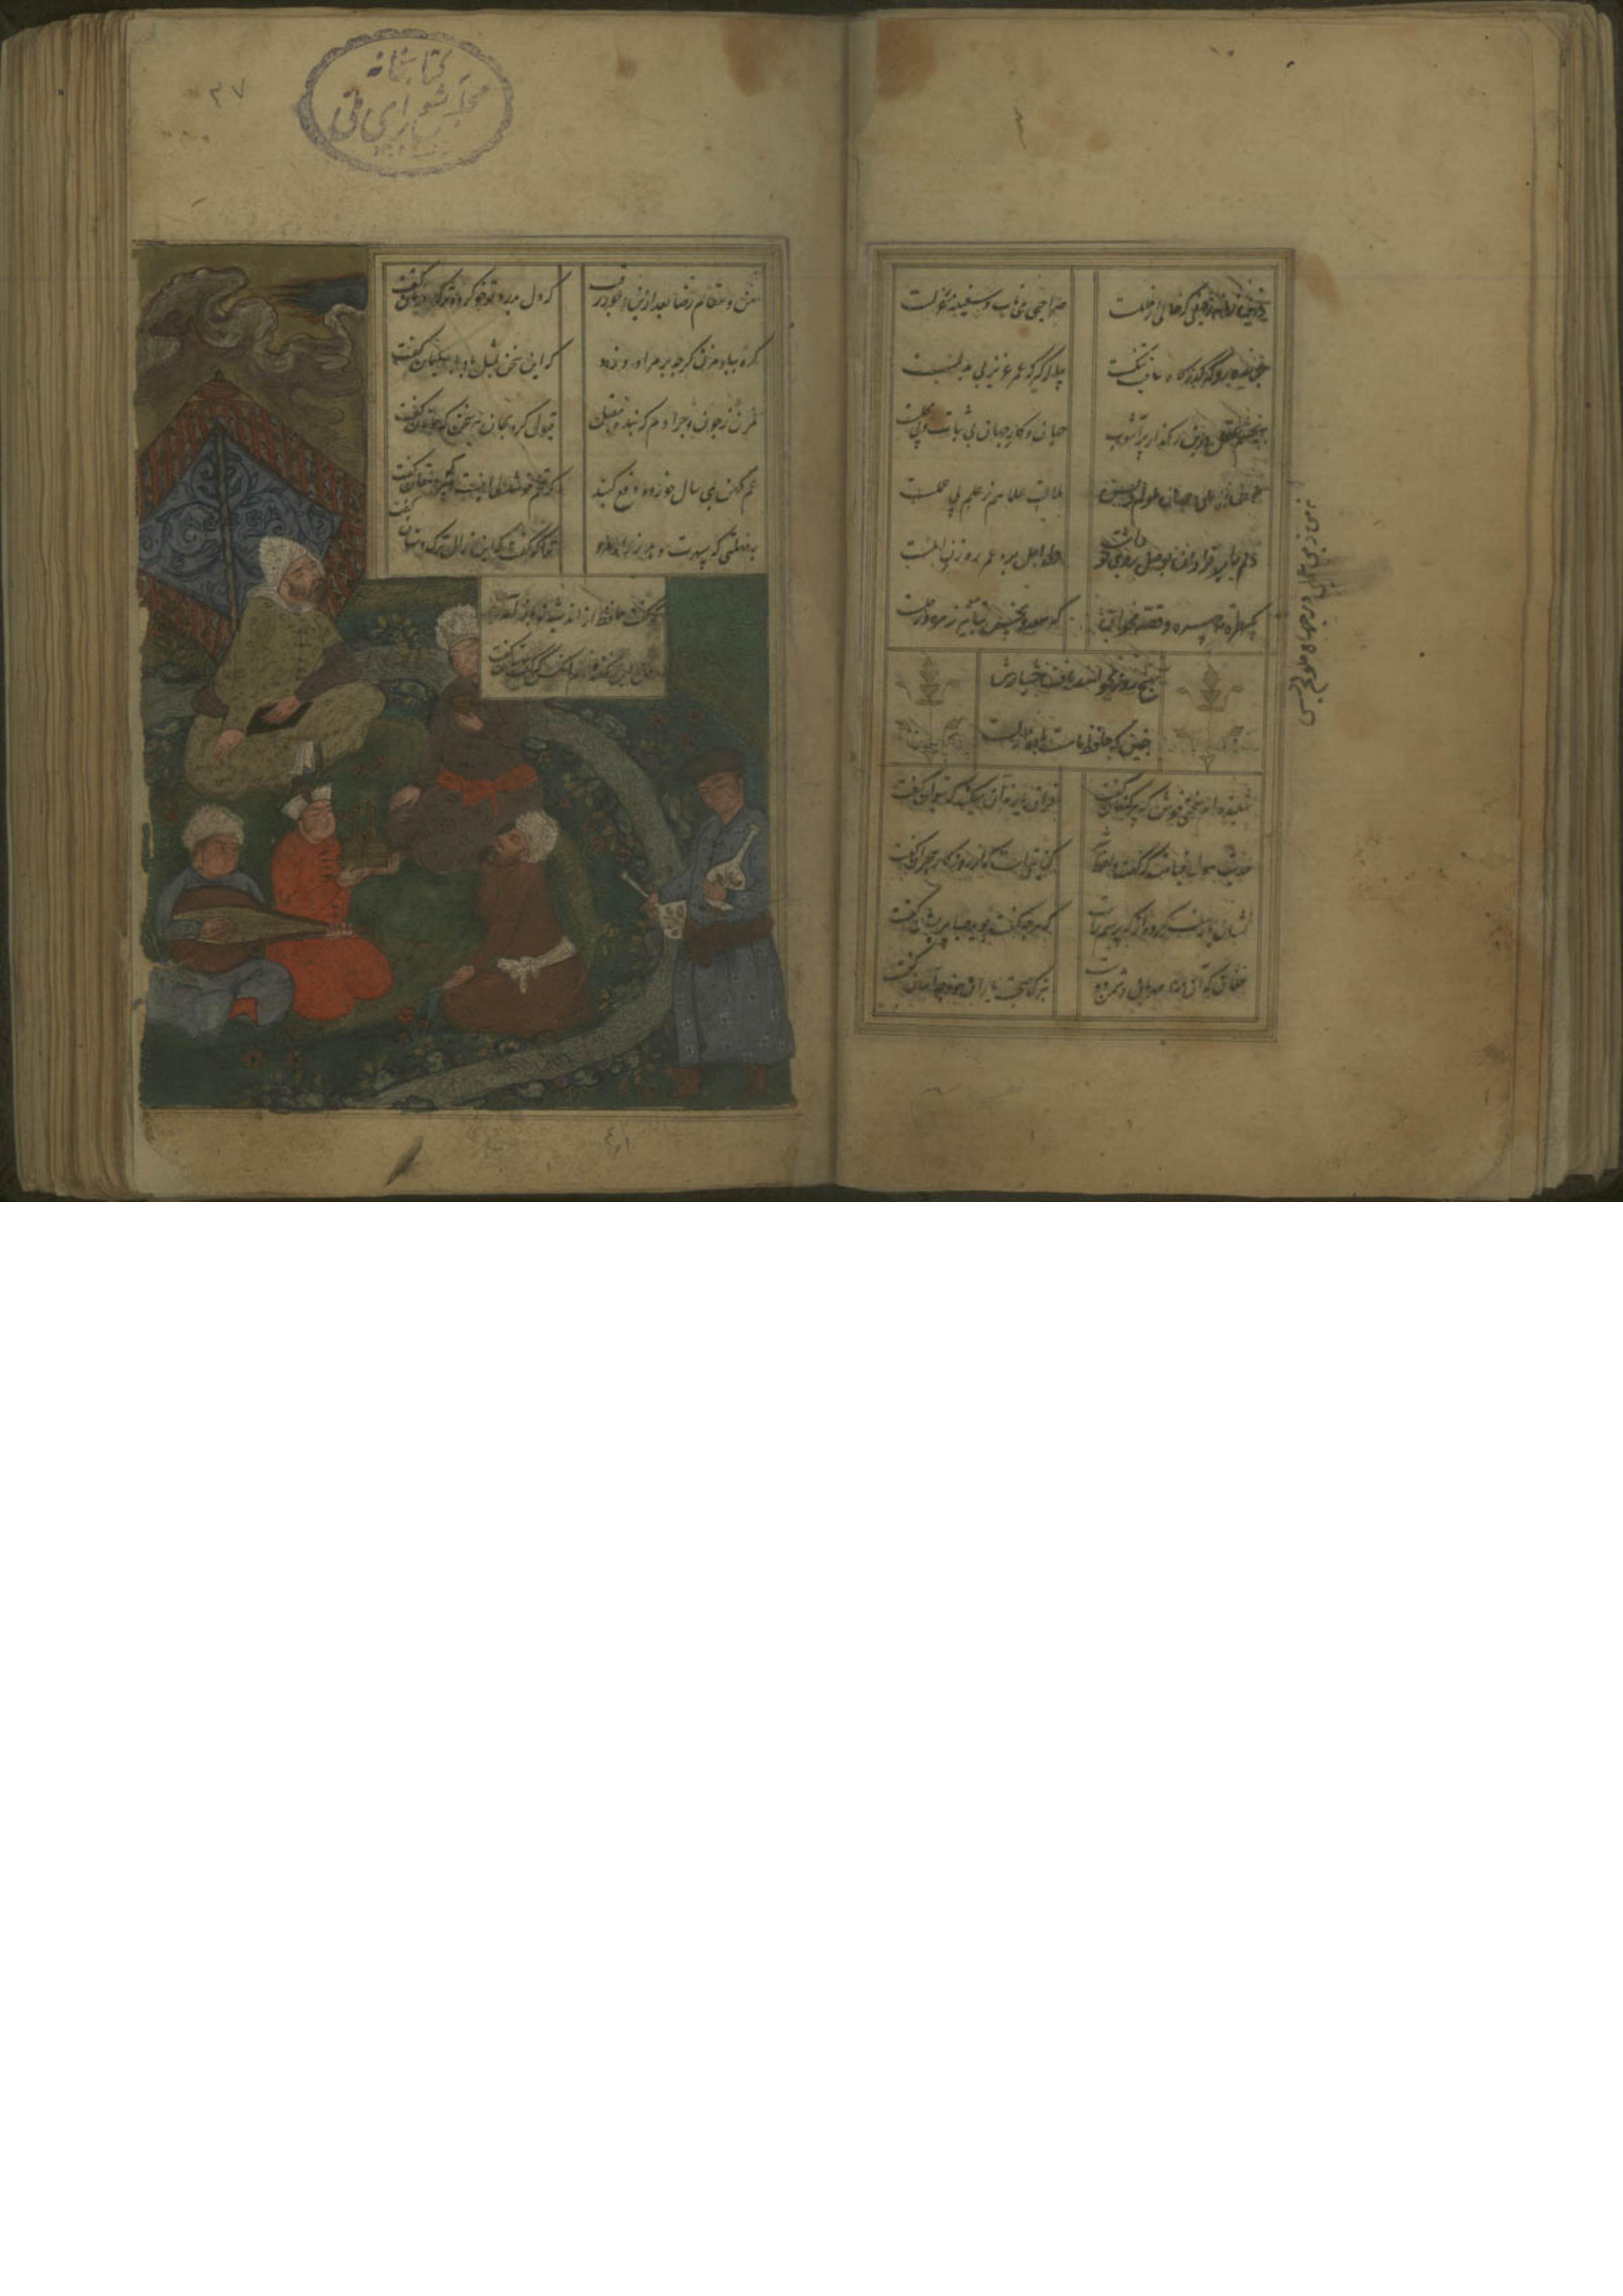 درین زمانه رفیقی که خالی از خللست صراحی می ناب و سفینه غزلست
جریده رو که گذرگاه عافیت تنگست پیاله گیر که عمر عزیز بی بدلست
بچشم عقل درین رهگذار پرآشوب جهان و کار جهان بی ثبات و بی محلست
نه من ز بی عملی در جهان ملولم و بس ملالت علما هم ز علم بی عملست
دلم امید فراوان بوصل روی تو داشت ولی اجل بره عمر رهزن املست
بگیر طره مه چهره و قصه مخوان که سعد و نحس ز تاثیر زهره و زحلست
بهیچ دور نخواهند یافت هشیارش
چنین که حافظ ما مست باده ازلست
شنیده ام سخنی خوش که پیر کنعان گفت فراق یار نه آن میکند که بتوان گفت
حدیث هول قیامت که گفت واعظ شهر کنایتیست که از روزگار هجران گفت
نشان یار سفر کرده از که پرسم راست که هر چه گفت برید صبا پریشان گفت
فغان که آن مه نامهربان دشمن دوست بترک صحبت یاران خود چه آسان گفت
نه من ز بی عملی در جهان ملولم و بس
۳۷
کتابخانه
مجلس شورای ملی
من و مقام رضا بعد ازین و جور رقیب که دل بدرد تو خو کرد و ترک درمان گفت
گره بباد مزن گرچه بر مراد وزد که این سخن بمثل باد با سلیمان گفت
مزن ز چون و چرا دم که بنده مقبل قبول کرد بجان هر سخن که جانان گفت
غم کهن بمی سال خورده دفع کنید که تخم خوشدلی اینست پیر دهقان گفت
بمهلتی که سپهرت دهد ز راه مرو ترا که گفت که این زال ترک دستان گفت
که گفت حافظ از اندیشه تو باز آمد
من این نگفته ام آنکس که گفت بهتان گفت